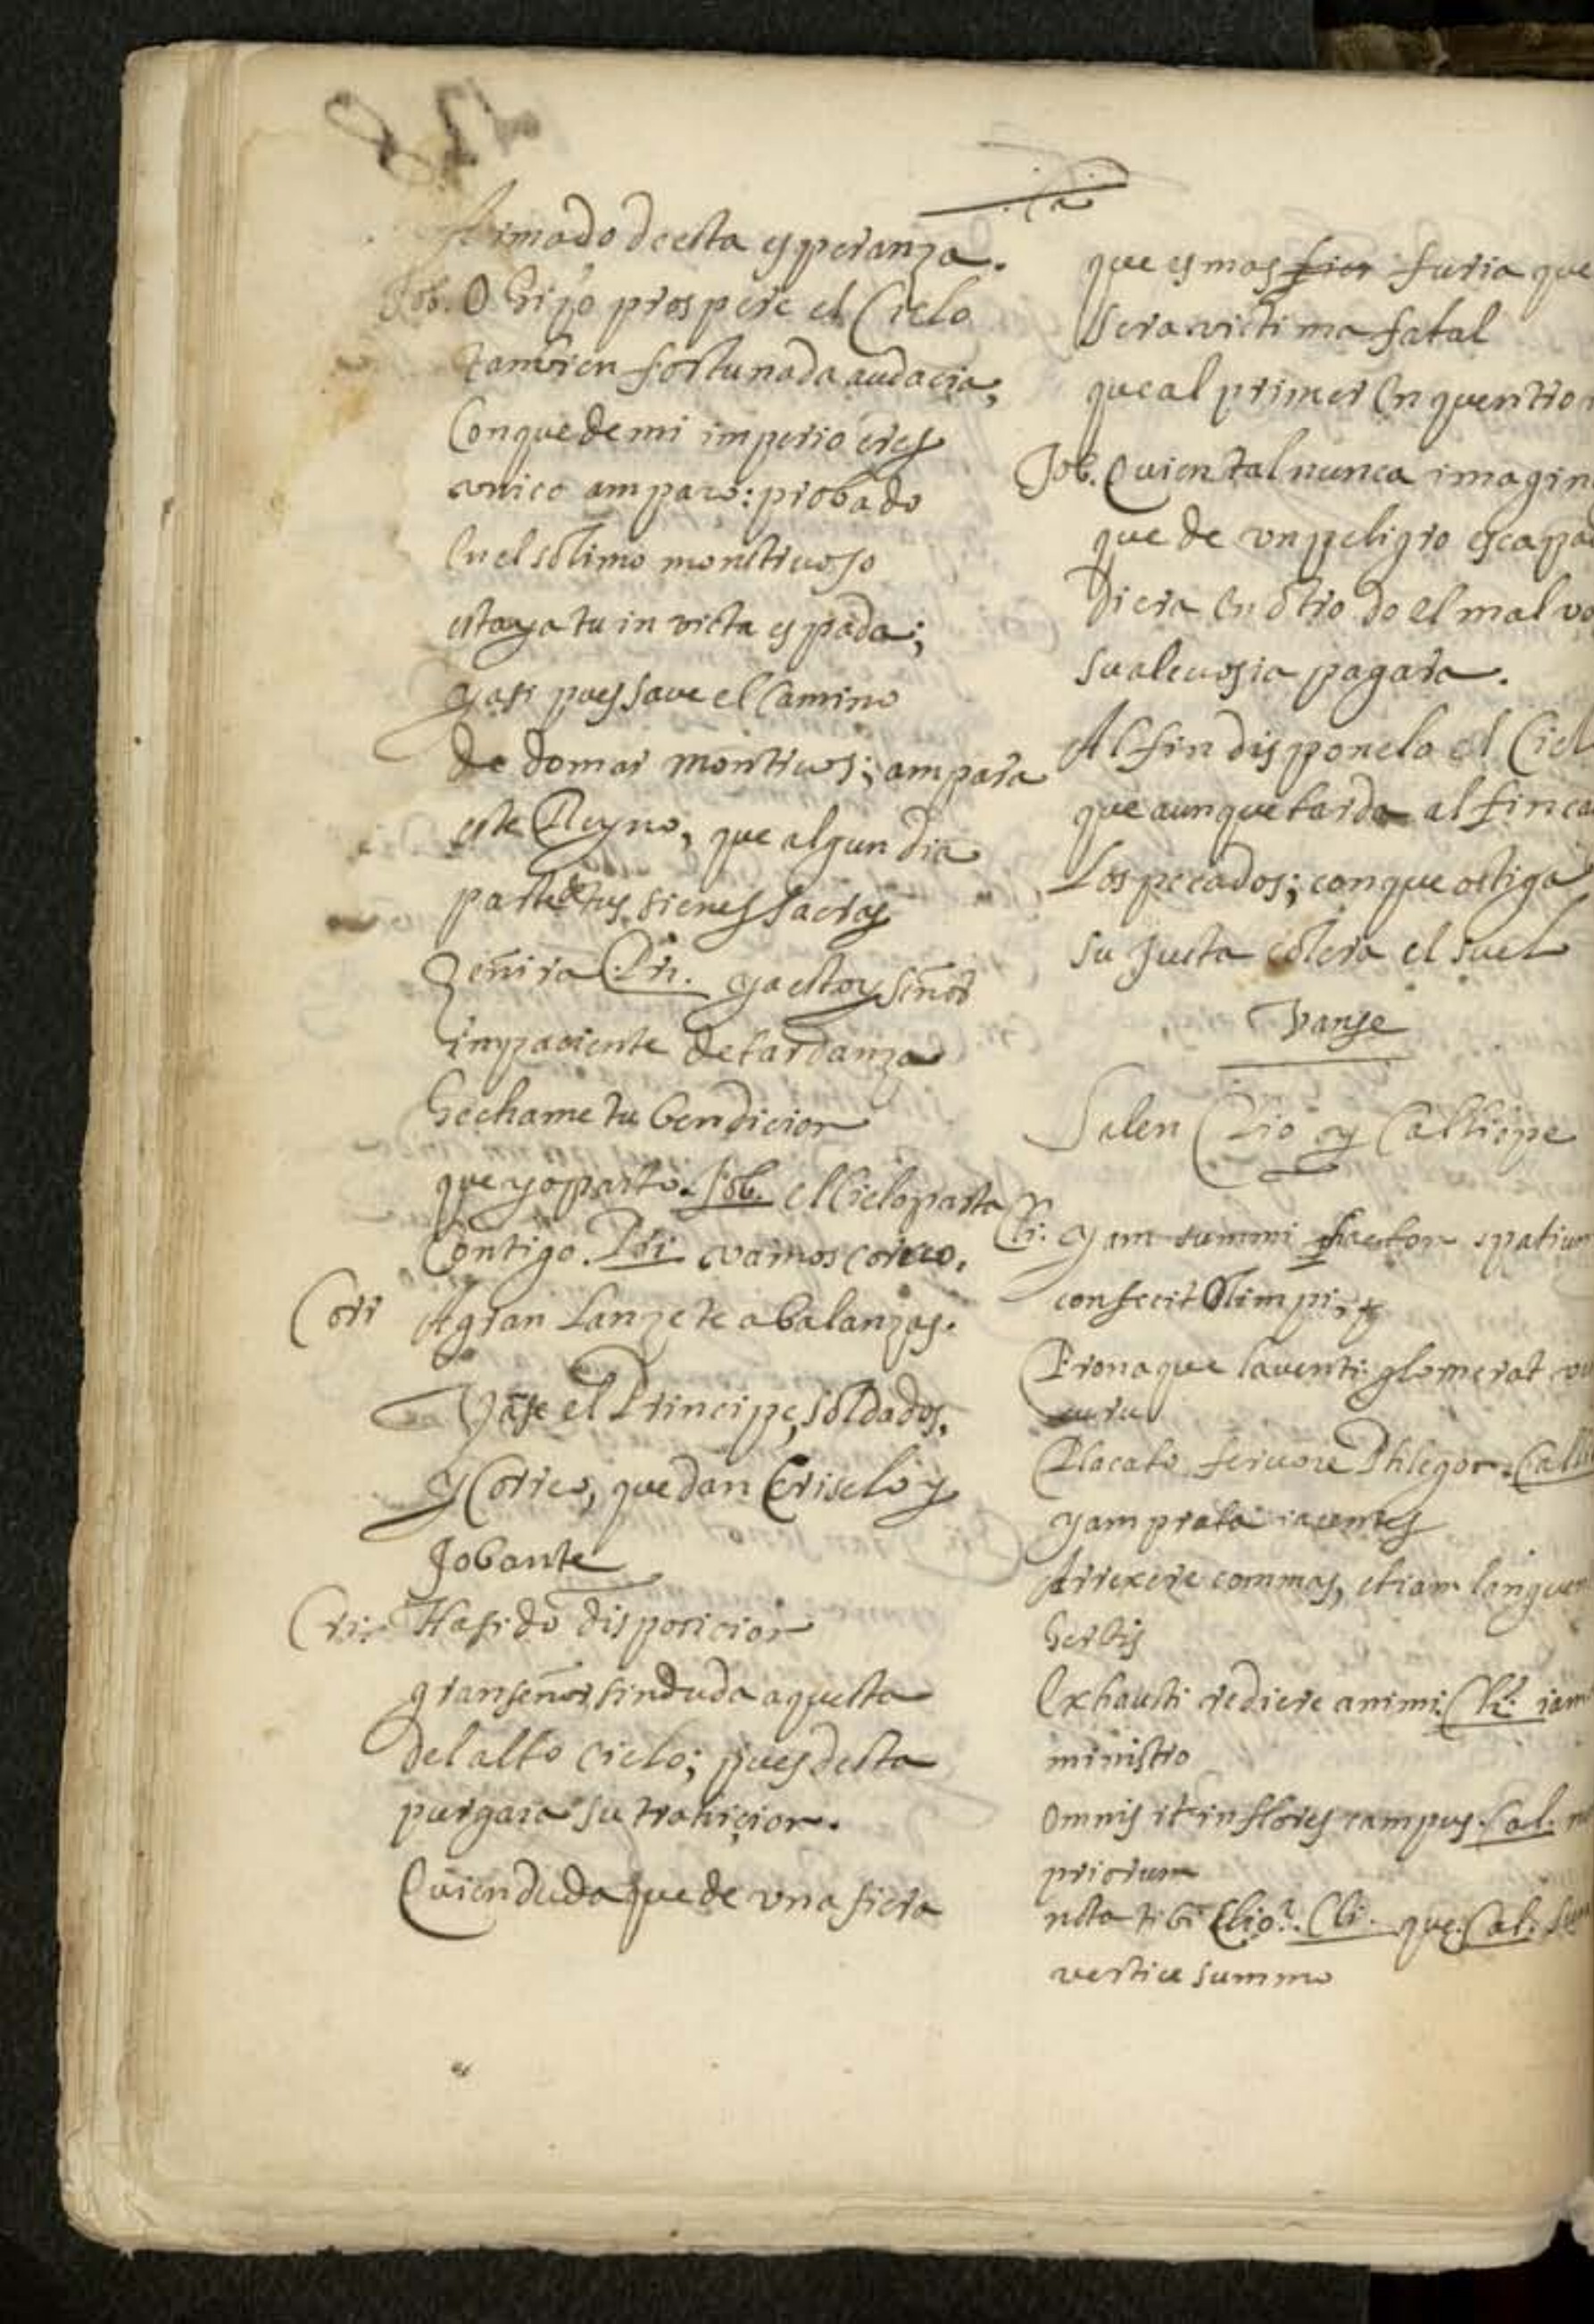 armado de esta esperanza.
Job. O hijo prospere el Cielo
tambien fortunada audacia,
Con que de mi imperio eres
unico amparo: probado
En el sólimo monstruoso
esta ya tu invicta espada;
y asi pues save el Camino
de domar monstruos; ampara
este Reyno, que algun dia
parte de tus sienes sacras
Zeñira Pri. ya estoy señor
impaciente de tardanza
hechame tu bendicion
que yo parto. Job. el Cielo parta
Contigo. Pri. vamos correo.
Corr A gran Lanzete abalanzas.
Vase el Principe, soldados,
y Correo, quedan Criselo y
Jobante
Cri. Ha sido disposicion
gran señor sin duda aquesta
del alto cielo; pues desta
purgara su trahicion.
Quien duda que de una fiera
que es mas fier furia que
sera victima fatal
que al primer Enquentro
Job. Quien tal nunca imagin
que de un peligro escapa
diera En otro do el malvo
su alevosia pagara.
Al fin disponelo el Ciel
que aunque tarda al fin ca
Los pecados; con que ostiga
su justa cólera el suel
Vanse
Salen Clio y Calliope
Cli. yam summi phaeton spatium
confecit Olimpi,
Pronaque laventi glomerat
curru
Placato fervore Phlegon. Calli
yam prata iacentes
Arrexere commas, etiam languen
herbis
Exhausti rediere animi. Cli. iam
ministro
Omnis it in flores campus. Cal.
priorum
nota tibi Clio? Cli. que. Cal.
vertice summo